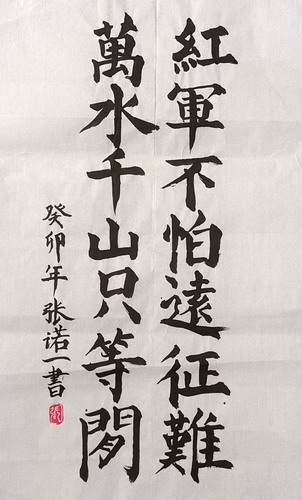 紅軍不怕遠征難
萬水千山只等閒
癸卯年张诺一書